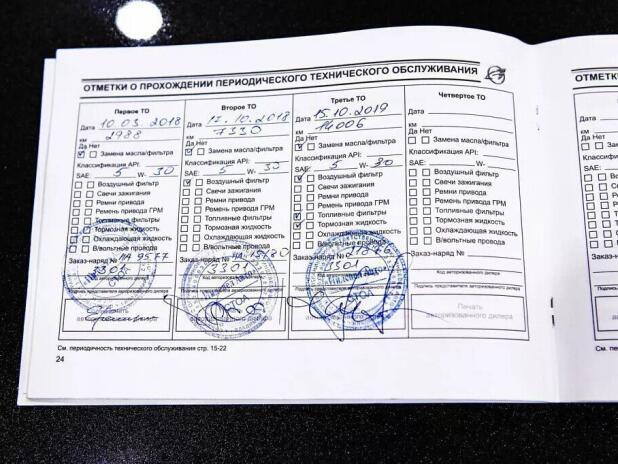 ОТМЕТКИ О ПРОХОЖДЕНИИ ПЕРИОДИЧЕСКОГО ТЕХНИЧЕСКОГО ОБСЛУЖИВАНИЯ
Первое ТО
Дата 10.03.2018
км 2988
Да Нет
Замена масла/фильтра
Классификация API:
SAE: 5 W- 30
Воздушный фильтр
Свечи зажигания
Ремни привода
Ремень привода ГРМ
Топливные фильтры
Тормозная жидкость
Охлаждающая жидкость
В/вольтные провода
Заказ-наряд № НА 9577
3301
Подпись представителя авторизованного дилера
Второе ТО
Дата 17.10.2018
км 7330
Да Нет
Замена масла/фильтра
Классификация API:
SAE: 5 W- 30
Воздушный фильтр
Свечи зажигания
Ремни привода
Ремень привода ГРМ
Топливные фильтры
Тормозная жидкость
Охлаждающая жидкость
В/вольтные провода
Заказ-наряд №
3301
Третье ТО
Дата 15.10.2019
км 14006
Да Нет
Замена масла/фильтра
Классификация API:
SAE: 5 W- 30
Воздушный фильтр
Свечи зажигания
Ремни привода
Ремень привода ГРМ
Топливные фильтры
Тормозная жидкость
Охлаждающая жидкость
В/вольтные провода
Заказ-наряд №
3301
Четвертое ТО
Дата
км
Да Нет
Замена масла/фильтра
Классификация API:
SAE: W-
Воздушный фильтр
Свечи зажигания
Ремни привода
Ремень привода ГРМ
Топливные фильтры
Тормозная жидкость
Охлаждающая жидкость
В/вольтные провода
Заказ-наряд №
Код авторизованного дилера
Подпись представителя авторизованного дилера
Печать
авторизованного дилера
См. периодичность технического обслуживания стр. 15-22
24
ОТМЕТК
Дата
км
Да Нет
См. пери